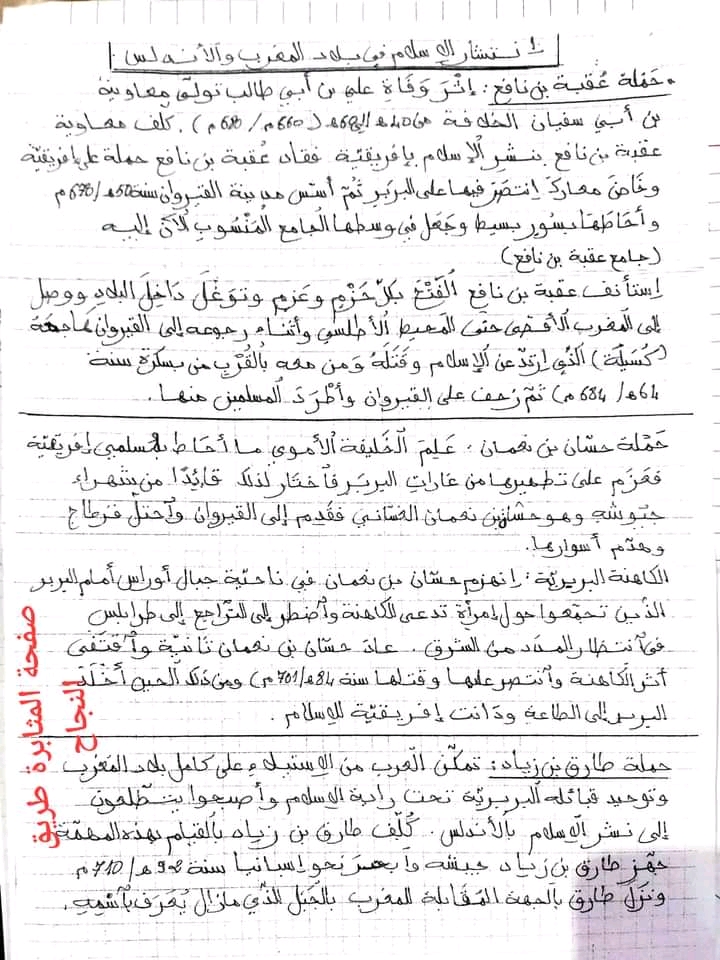 انتشار الإسلام في بلاد المغرب والأندلس
• حَمْلة عُقبة بن نافع: إثْرَ وَفَاةِ علي بن أبي طالب تولّى معاوية
بن أبي سفيان الخلافة من 40ه إلى 60ه (660م / 680م). كلف معاوية
عقبة بن نافع بنشر الإسلام بإفريقيّة فقاد عُقبة بن نافع حملة على إفريقيّة
وخَاضَ معارك إنتصَرَ فيها على البربَر ثُمّ أسّس مدينة القيروان سنة 50ه/670م
وأحَاطَهَا بسُورٍ بسيط وجَعل في وسطها الجامع المَنْسُوب الآنَ إليه
(جامع عقبة بن نافع)
إستأنف عقبة بن نافع الفَتْحَ بكلّ حَزْمٍ وعَزمٍ وتوَغّلَ دَاخِلَ البلادِ ووصل
إلى المغرب الأقصى حتى المحيط الأطلسي وأثناء رجوعه إلى القيروان هاجمهُ
(كُسَيْلَة) الذي إرتدّ عن الإسلام وقَتَلَهُ وَمن معه بالقُرْبِ من بسكرة سنة
64ه/684م) ثمّ زحف على القيروان وأطْرَدَ المسلمين منها.
حَمْلة حسّان بن نعمان: عَلِمَ الخَليفة الأموي ما أحَاط بمسلمي إفريقيّة
فعَزم على تطهيرها من غارات البربَر فاختار لذلك قائدًا من شهراء
جيوشه وهو حسّان بن نعمان الغسّاني فقَدِم إلى القيروان واحتل قرطاج
وهدّم أسوارها.
الكاهنة البربريّة: إنهزم حسّان بن نعمان في ناحيّة جبال أوراس أمام البربر
الذين تجمّعوا حول إمرأة تدعى الكاهنة واضطر إلى التراجع إلى طرابلس
في انتظار المدد من الشرق. عادَ حسّان بن نعمان ثانيّة واقتفى
أثر الكاهنة وانتصر عليها وقتلها سنة 84ه/701م) ومن ذلك الحين أخْلَدَ
البربر إلى الطاعة ودَانت إفريقيّة للإسلام.
حملة طارق بن زياد: تمكّن العرب من الإستيلاءِ على كامل بلاد المغرب
وتوحيد قبائله البربريّة تحت راية الإسلام وأصبحوا يتطلّعون
إلى نشر الإسلام بالأندلس. كُلّف طارق بن زياد بالقيام بهذه المهمّة
جهّز طارق بن زياد جيشه وأبحرَ نحو إسبانيا سنة 92ه/710م
ونزل طارق بالجهة المقابلة للمغرب بالجَبَل الذي مازال يُعْرَف بآسْمِهِ.
صفحة المثابرة طريق
النجاح